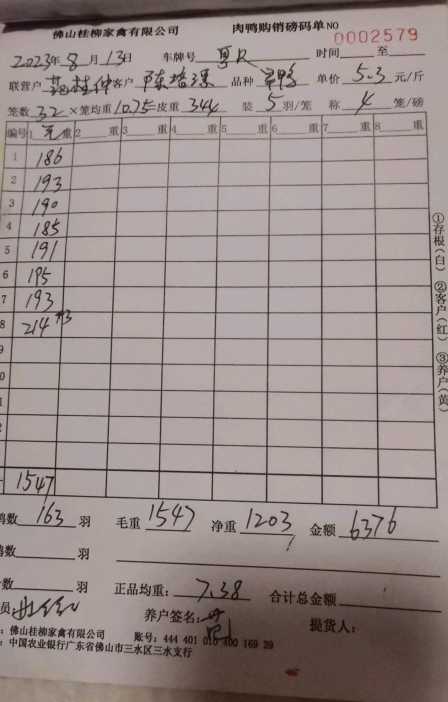 佛山桂柳家禽有限公司 肉鸭购销磅码单 NO 0002579
2023年 8 月 13 日 车牌号 时间 至
联营户 客户 品种 单价 5.3 元/斤
笼数 32 ×笼均重 10.75 皮重 344 装 5 羽/笼 称 4 笼/磅
编号 1 重 2 重 3 重 4 重 5 重 6 重 7 重 8 重
1 186
2 193
3 190
4 185
5 191
6 195
7 193
8 214 +3
9
0
1
2
1547
鸭数 163 羽 毛重 1547 净重 1203 金额 6376
鸭数 羽
数 羽 正品均重: 7.38 合计总金额
员: 养户签名: 提货人:
: 佛山桂柳家禽有限公司 账号: 444 401 010 400 169 39
: 中国农业银行广东省佛山市三水区三水支行
①存根(白) ②客户(红) ③养户(黄)